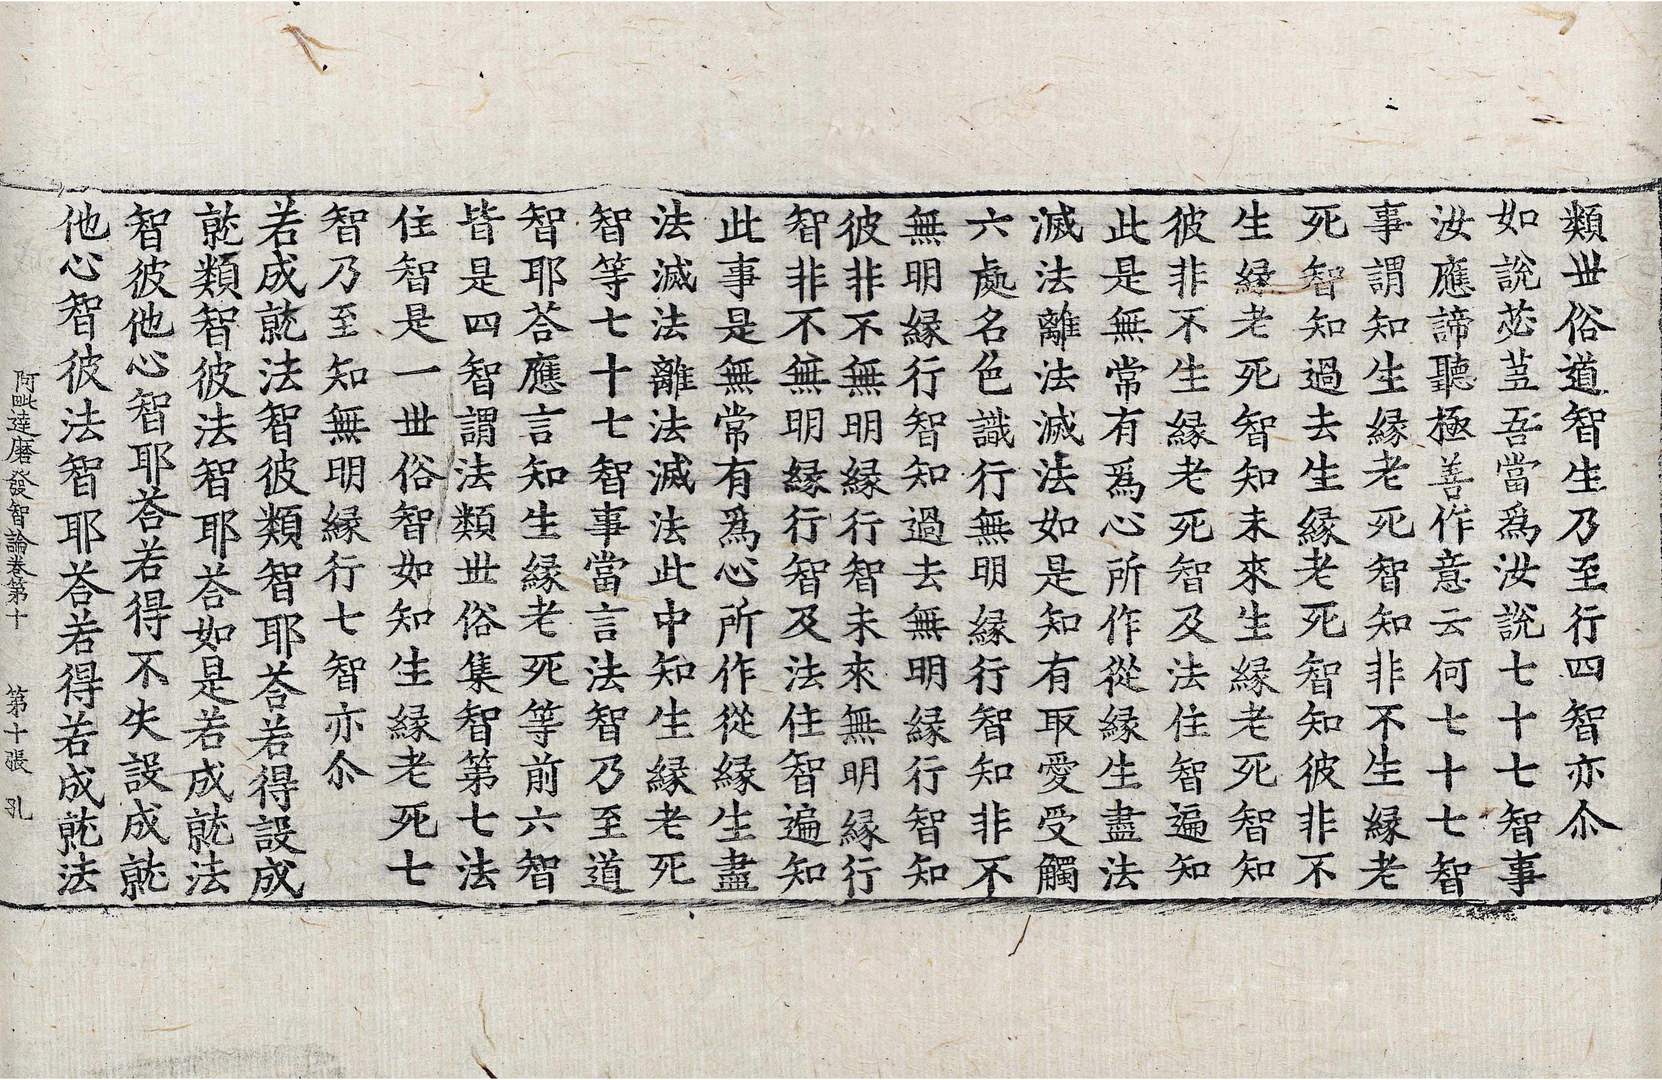 類世俗道智生乃至行四智亦尒
如說苾芻吾當爲汝說七十七智事
汝應諦聽極善作意云何七十七智
事謂知生緣老死智知非不生緣老
死智知過去生緣老死智知彼非不
生緣老死智知未來生緣老死智知
彼非不生緣老死智及法住智遍知
此是無常有爲心所作從緣生盡法
滅法離法滅法如是知有取愛受觸
六處名色識行無明緣行智知非不
無明緣行智知過去無明緣行智知
彼非不無明緣行智未來無明緣行
智非不無明緣行智及法住智遍知
此事是無常有爲心所作從緣生盡
法滅法離法滅法此中知生緣老死
智等七十七智事當言法智乃至道
智耶荅應言知生緣老死等前六智
皆是四智謂法類世俗集智第七法
住智是一世俗智如知生緣老死七
智乃至知無明緣行七智亦尒
若成就法智彼類智耶荅若得設成
就類智彼法智耶荅如是若成就法
智彼他心智耶荅若得不失設成就
他心智彼法智耶荅若得若成就法
阿毗達磨發智論卷第十 第十張 孔